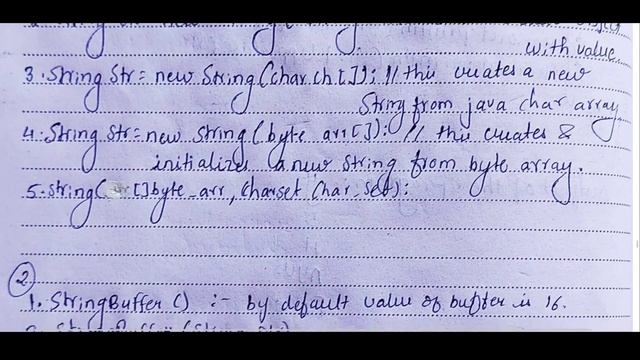 with value.
3. String Str = new String(char ch[]); // this creates a new
String from java char array
4. String Str = new String (byte arr[]); // this creates &
initializes a new string from byte array.
5. String( []byte_arr, Charset Char_set):
②
1. StringBuffer () :- by default value of buffer is 16.